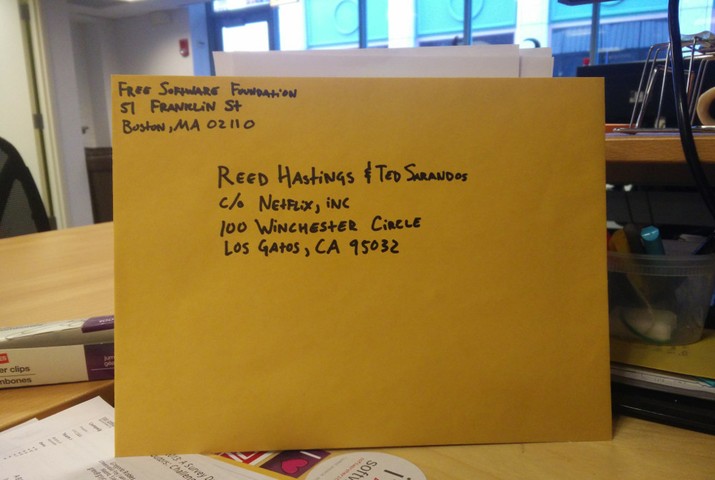 Free Software Foundation
51 Franklin St
Boston, MA 02110
Reed Hastings & Ted Sarandos
c/o Netflix, inc
100 Winchester Circle
Los Gatos, CA 95032
er clips
mbones
A Survey
Challen
i
softw